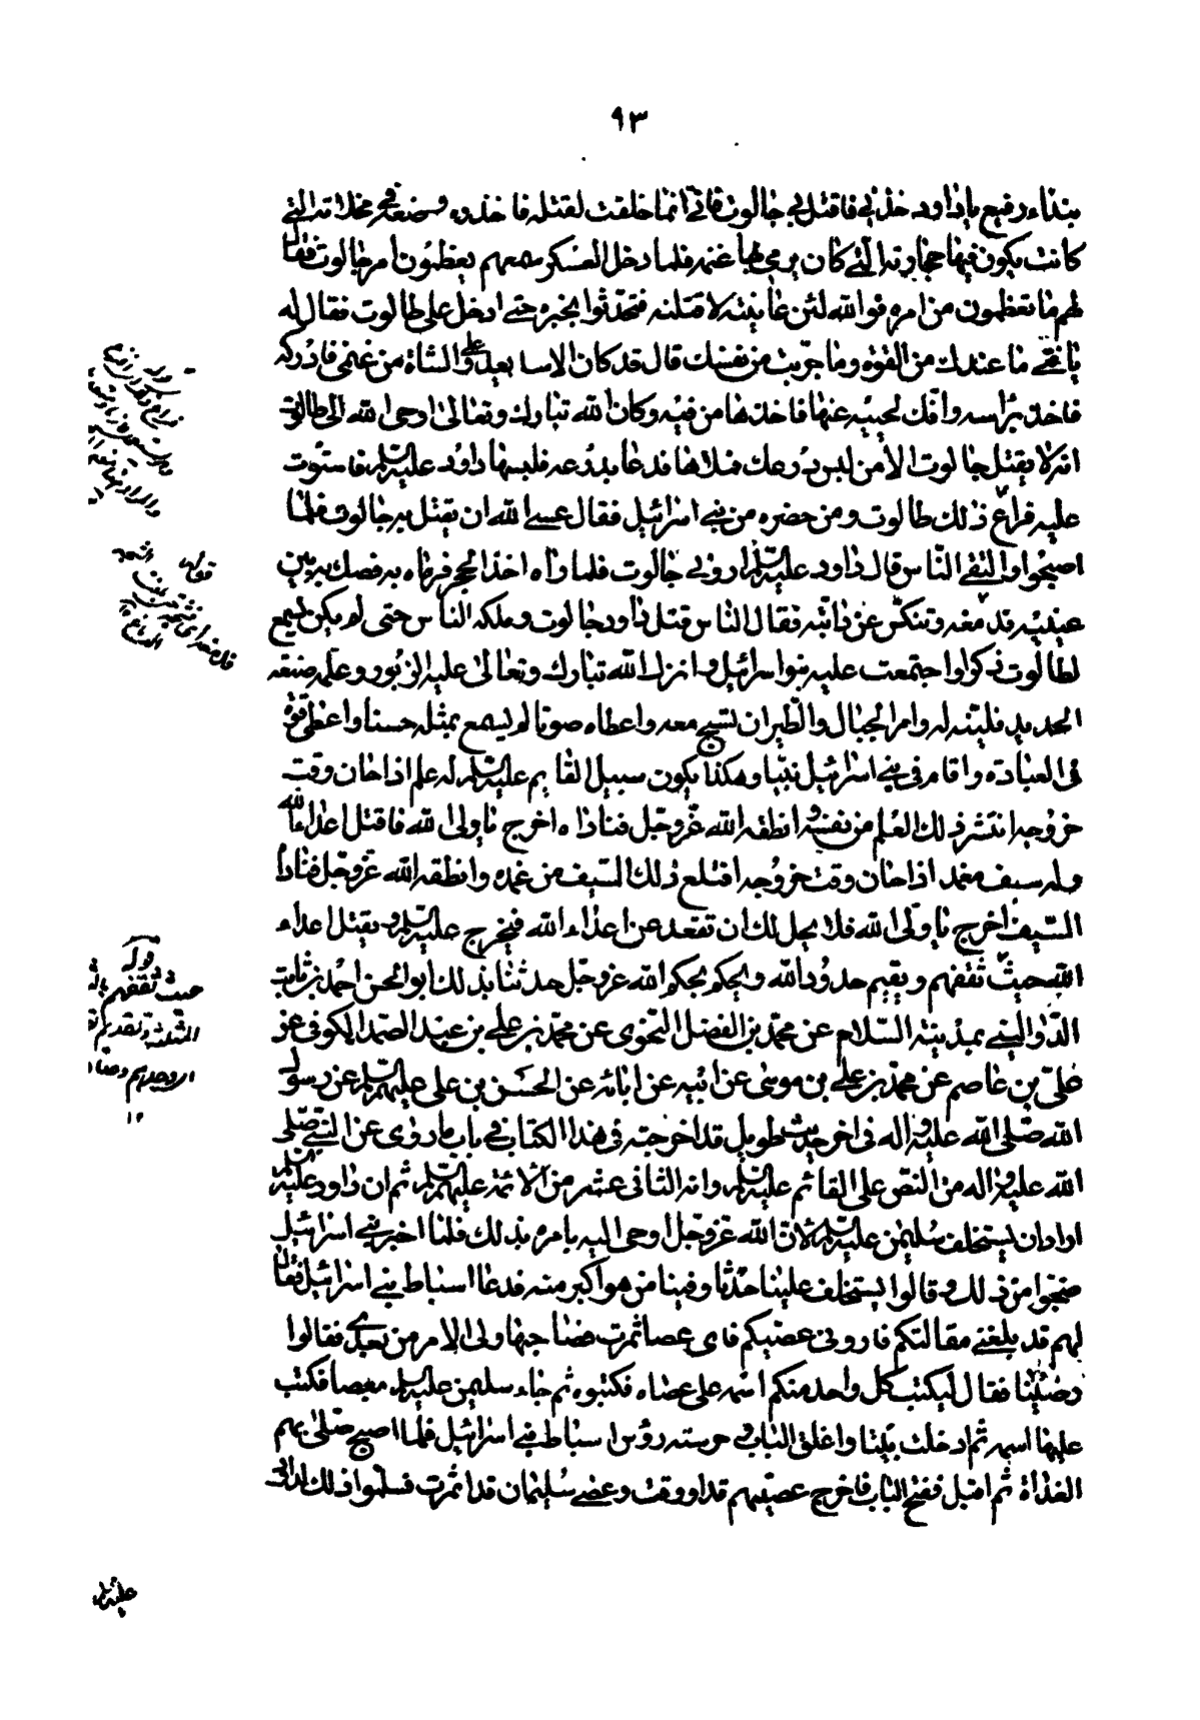 ٩٣
بنداء رفيع يا داود خذني فاقتل بي جالوت فاني انما خلقت لقتله فاخذه و وضعه في مخلاته التي
كانت يكون فيها حجارته التي كان يرمي بها غنمه فلما دخل العسكر سمعهم يعظمون امر جالوت فقال
لهم ما تعظمون من امره فوالله لئن عاينته لاقتلنه فتحدثوا بخبره حتى ادخل على طالوت فقال له
يا فتى ما عندك من القوة وما جربت من نفسك قال قد كان الاسد يعدو على الشاة من غنمي فادركه
فاخذ براسه وافك لحييه عنها فاخذها من فيه وكان الله تبارك وتعالى اوحى الله الى طالوت
انه لا يقتل جالوت الا من لبس درعك فملاها فدعا بدرعه فلبسها داود عليه السلم فاستوت
عليه فراع ذلك طالوت ومن حضره من بني اسرائيل فقال عسى الله ان يقتل به جالوت فلما
اصبحوا والتقى الناس قال داود عليه السلم اروني جالوت فلما راه اخذ الحجر فرماه به فصك به بين
عينيه فدمغه وتنكس عن دابته فقال الناس قتل داود جالوت وملكه الناس حتى لم يكن يسمع
لطالوت ذكر واجتمعت عليه بنو اسرائيل وانزل الله تبارك وتعالى عليه الزبور وعلمه صنعة
الحديد فلينه له وامر الجبال والطير ان تسبح معه واعطاه صوتا لم يسمع بمثله حسنا واعطى قوة
في العبادة واقام في بني اسرائيل نبيا وهكذا يكون سبيل القايم عليه السلم له علم اذا حان وقت
خروجه انتشر ذلك العلم من نفسه وانطقه الله عز وجل فناداه اخرج يا ولى الله فاقتل اعداء الله
وله سيف مغمد اذا حان وقت خروجه اقتلع ذلك السيف من غمده وانطقه الله عز وجل فناداه
السيف اخرج يا ولى الله فلا يحل لك ان تقعد عن اعداء الله فيخرج عليه السلم ويقتل اعداء
الله حيث ثقفهم ويقيم حدود الله ويحكم بحكم الله عز وجل حدثنا بذلك ابو الحسن احمد بن ثابت
الدواليني بمدينة السلام عن محمد بن الفضل النحوى عن محمد بن علي بن عبد الصمد الكوفي عن
علي بن عاصم عن محمد بن علي بن موسى عن ابيه عن ابائه عن الحسين بن علي عليهم السلم عن رسول
الله صلى الله عليه واله في اخر حديث طويل قد اخرجته في هذا الكتاب في باب ما روى عن النبي صلى
الله عليه واله من النص على القائم عليه السلم وانه الثاني عشر من الائمة عليهم السلم ثم ان داود عليه السلم
اراد ان يستخلف سليمن عليه السلم لان الله عز وجل اوحى اليه يامره بذلك فلما اخبر بني اسرائيل
ضجوا من ذلك وقالوا يستخلف علينا حدثا وفينا من هو اكبر منه فدعا اسباط بني اسرائيل فقال
لهم قد بلغني مقالتكم فاروني عصيكم فاى عصا اثمرت فصاحبها ولى الامر من بعدي فقالوا
رضينا فقال ليكتب كل واحد منكم اسمه على عصاه فكتبوه ثم جاء سليمن عليه السلم بعصاه فكتب
عليها اسمه ثم ادخلت بيتا واغلق الباب و حرسته رؤس اسباط بني اسرائيل فلما اصبح صلى بهم
الغداة ثم اقبل ففتح الباب فاخرج عصيهم قد اورقت وعصى سليمان قد اثمرت فسلموا ذلك لداود
قوله
حيث ثقفهم
عليه السلم